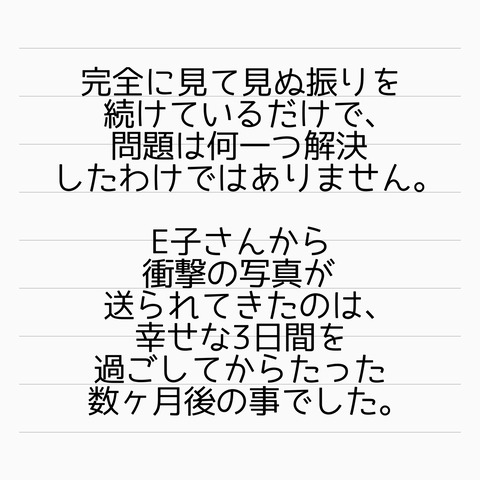 完全に見て見ぬ振りを
続けているだけで、
問題は何一つ解決
したわけではありません。
E子さんから
衝撃の写真が
送られてきたのは、
幸せな3日間を
過ごしてからたった
数ヶ月後の事でした。